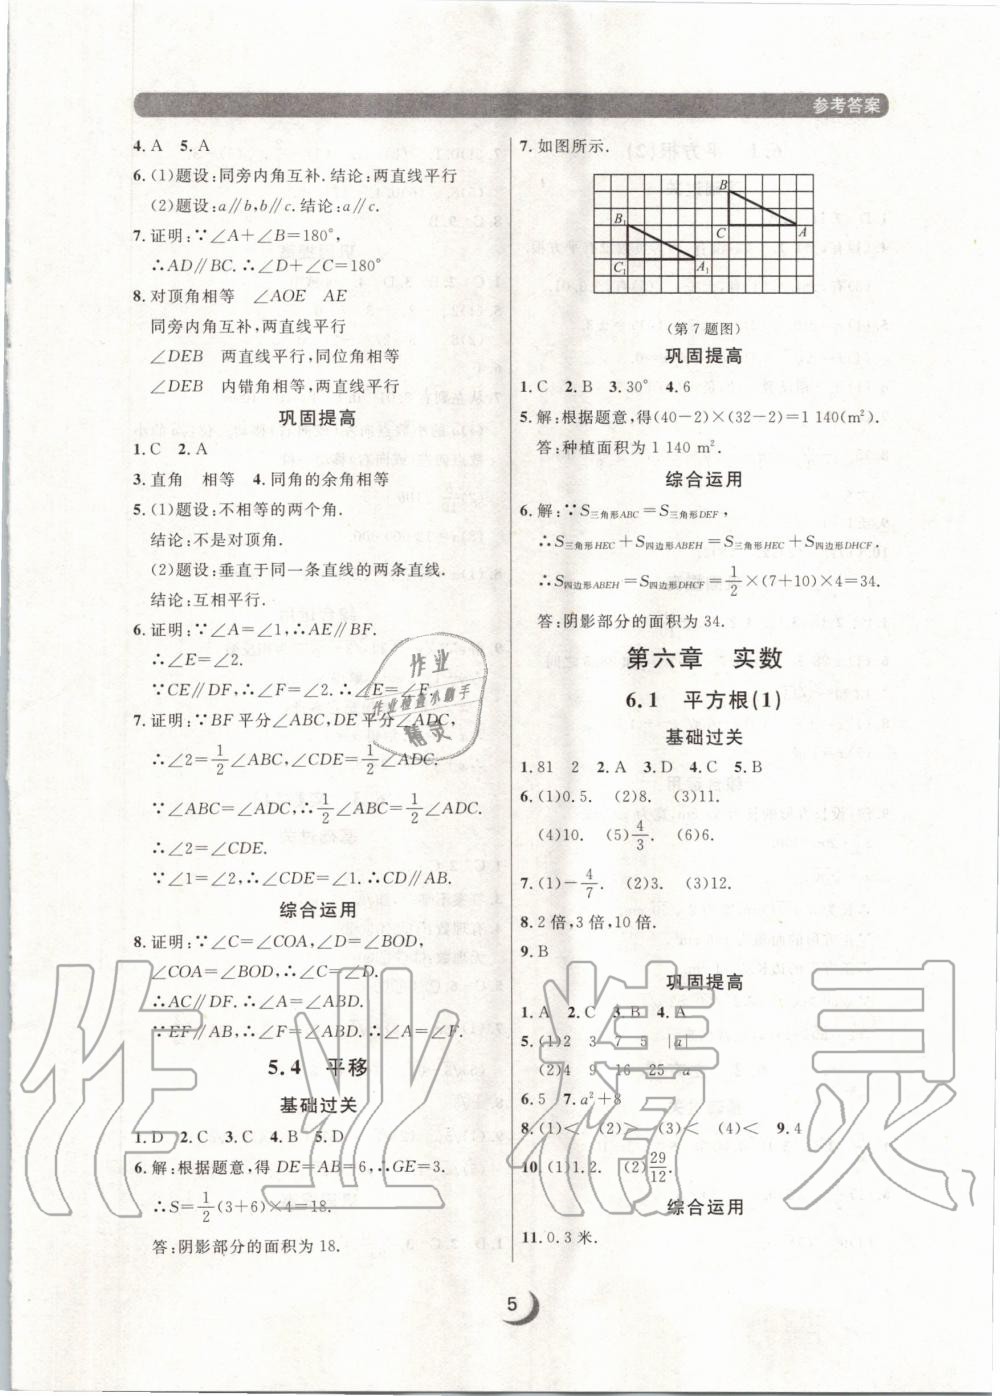 参考答案
4.A 5.A
6.(1)题设:同旁内角互补.结论:两直线平行
(2)题设:a∥b,b∥c.结论:a∥c.
7.证明:∵∠A+∠B=180°,
∴AD∥BC.∴∠D+∠C=180°
8.对顶角相等 ∠AOE AE
同旁内角互补,两直线平行
∠DEB 两直线平行,同位角相等
∠DEB 内错角相等,两直线平行
巩固提高
1.C 2.A
3.直角 相等 4.同角的余角相等
5.(1)题设:不相等的两个角.
结论:不是对顶角.
(2)题设:垂直于同一条直线的两条直线.
结论:互相平行.
6.证明:∵∠A=∠1,∴AE∥BF.
∴∠E=∠2.
∵CE∥DF,∴∠2=∠F.∴∠E=∠F.
7.证明:∵BF平分∠ABC,DE平分∠ADC,
∴∠2=1/2∠ABC,∠CDE=1/2∠ADC.
∵∠ABC=∠ADC,∴1/2∠ABC=1/2∠ADC.
∴∠2=∠CDE.
∵∠1=∠2,∴∠CDE=∠1.∴CD∥AB.
综合运用
8.证明:∵∠C=∠COA,∠D=∠BOD,
∠COA=∠BOD,∴∠C=∠D.
∴AC∥DF.∴∠A=∠ABD.
∵EF∥AB,∴∠F=∠ABD.∴∠A=∠F.
5.4 平移
基础过关
1.D 2.C 3.C 4.B 5.D
6.解:根据题意,得DE=AB=6,∴GE=3.
∴S=1/2(3+6)×4=18.
答:阴影部分的面积为18.
7.如图所示.
B
B₁
C A
C₁ A₁
(第7题图)
巩固提高
1.C 2.B 3.30° 4.6
5.解:根据题意,得(40-2)×(32-2)=1 140(m²).
答:种植面积为1 140 m².
综合运用
6.解:∵S三角形ABC=S三角形DEF,
∴S三角形HEC+S四边形ABEH=S三角形HEC+S四边形DHCF.
∴S四边形ABEH=S四边形DHCF=1/2×(7+10)×4=34.
答:阴影部分的面积为34.
第六章 实数
6.1 平方根(1)
基础过关
1.81 2 2.A 3.D 4.C 5.B
6.(1)0.5. (2)8. (3)11.
(4)10. (5)4/3. (6)6.
7.(1)-4/7. (2)3. (3)12.
8.2倍,3倍,10倍.
9.B
巩固提高
1.A 2.C 3.B 4.A
5.(1)2 3 7 5 |a|
(2)4 9 16 25 a
6.5 7.a²+8
8.(1)< (2)> (3)< (4)< 9.4
10.(1)1.2. (2)29/12.
综合运用
11.0.3米.
5
作业
作业检查小助手
精灵
作业精灵